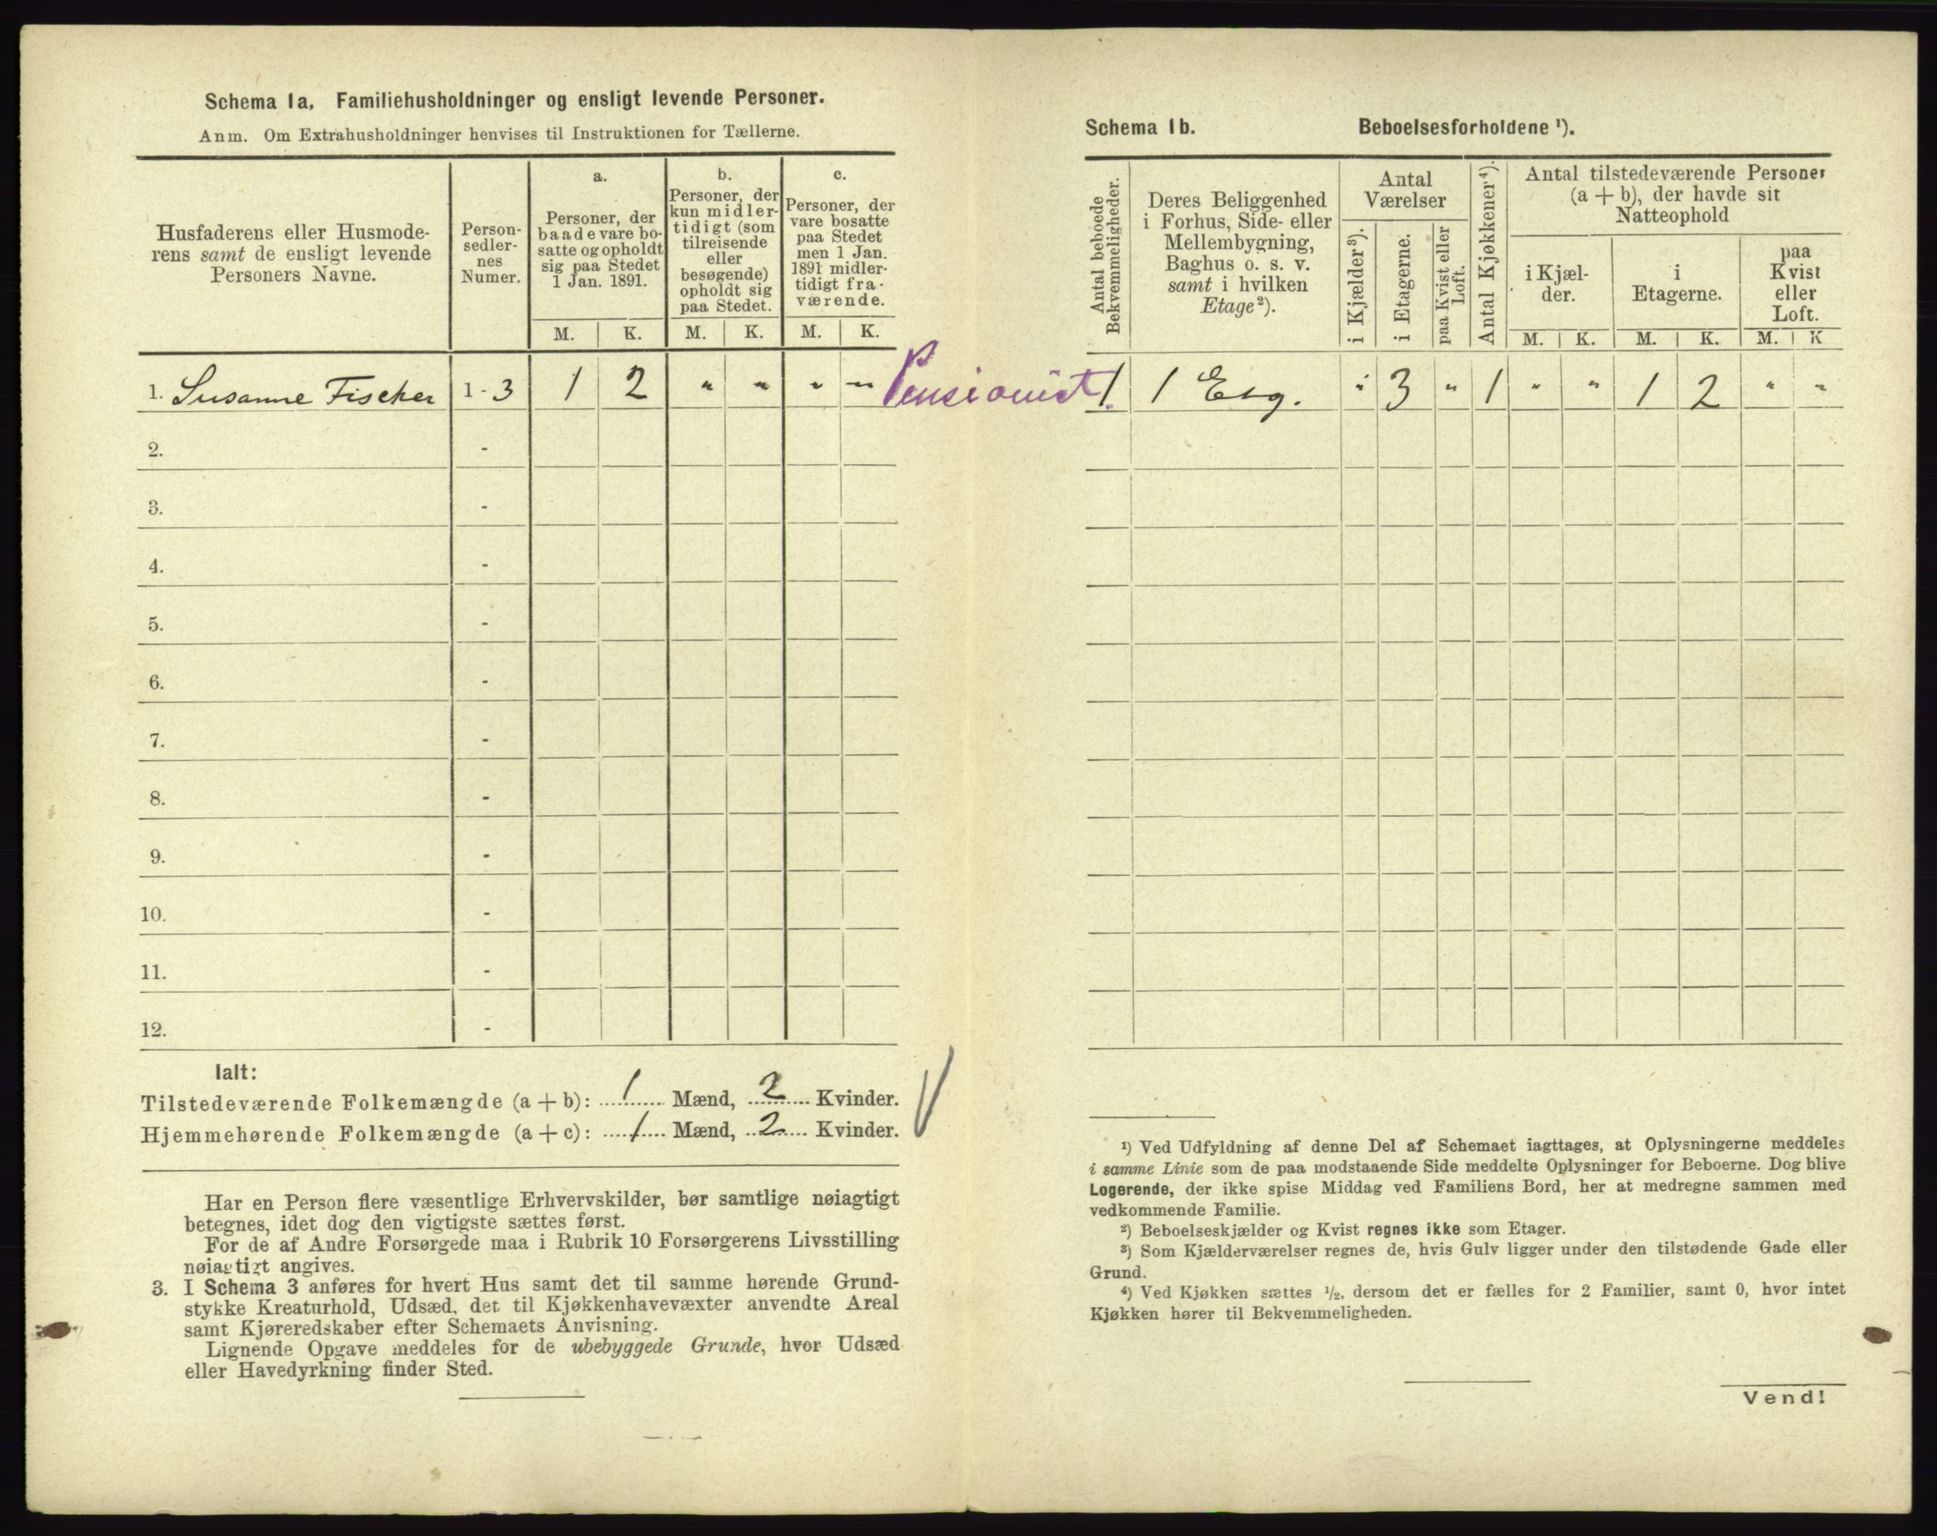 Schema 1a. Familiehusholdninger og ensligt levende Personer.
Anm. Om Extrahusholdninger henvises til Instruktionen for Tællerne.
Husfaderens eller Husmode-
rens samt de ensligt levende
Personers Navne.
Person-
sedler-
nes
Numer.
a.
Personer, der
baade vare bo-
satte og opholdt
sig paa Stedet
1 Jan. 1891.
M. K.
b.
Personer, der
kun midler-
tidigt (som
tilreisende
eller
besøgende)
opholdt sig
paa Stedet.
M. K.
c.
Personer, der
vare bosatte
paa Stedet
men 1 Jan.
1891 midler-
tidigt fra-
værende.
M. K.
1. Susanne Fischer 1 - 3 1 2 " " " " Pensionist.
2. -
3. -
4. -
5. -
6. -
7. -
8. -
9. -
10. -
11. -
12. -
Ialt:
Tilstedeværende Folkemængde (a + b): 1 Mænd, 2 Kvinder.
Hjemmehørende Folkemængde (a + c): 1 Mænd, 2 Kvinder.
Har en Person flere væsentlige Erhvervskilder, bør samtlige nøiagtigt
betegnes, idet dog den vigtigste sættes først.
For de af Andre Forsørgede maa i Rubrik 10 Forsørgerens Livsstilling
nøiagtigt angives.
3. I Schema 3 anføres for hvert Hus samt det til samme hørende Grund-
stykke Kreaturhold, Udsæd, det til Kjøkkenhavevæxter anvendte Areal
samt Kjøreredskaber efter Schemaets Anvisning.
Lignende Opgave meddeles for de ubebyggede Grunde, hvor Udsæd
eller Havedyrkning finder Sted.
Schema 1b. Beboelsesforholdene ¹).
Antal beboede
Bekvemmeligheder.
Deres Beliggenhed
i Forhus, Side- eller
Mellembygning,
Baghus o. s. v.
samt i hvilken
Etage²).
Antal
Værelser
i Kjælder³).
i Etagerne.
paa Kvist eller
Loft.
Antal Kjøkkener⁴).
Antal tilstedeværende Personer
(a + b), der havde sit
Natteophold
i Kjæl-
der.
i
Etagerne.
paa
Kvist
eller
Loft.
M. K. M. K. M. K
1 1 Etg. " 3 " 1 " " 1 2 " "
¹) Ved Udfyldning af denne Del af Schemaet iagttages, at Oplysningerne meddeles
i samme Linie som de paa modstaaende Side meddelte Oplysninger for Beboerne. Dog blive
Logerende, der ikke spise Middag ved Familiens Bord, her at medregne sammen med
vedkommende Familie.
²) Beboelseskjælder og Kvist regnes ikke som Etager.
³) Som Kjælderværelser regnes de, hvis Gulv ligger under den tilstødende Gade eller
Grund.
⁴) Ved Kjøkken sættes ½, dersom det er fælles for 2 Familier, samt 0, hvor intet
Kjøkken hører til Bekvemmeligheden.
Vend!